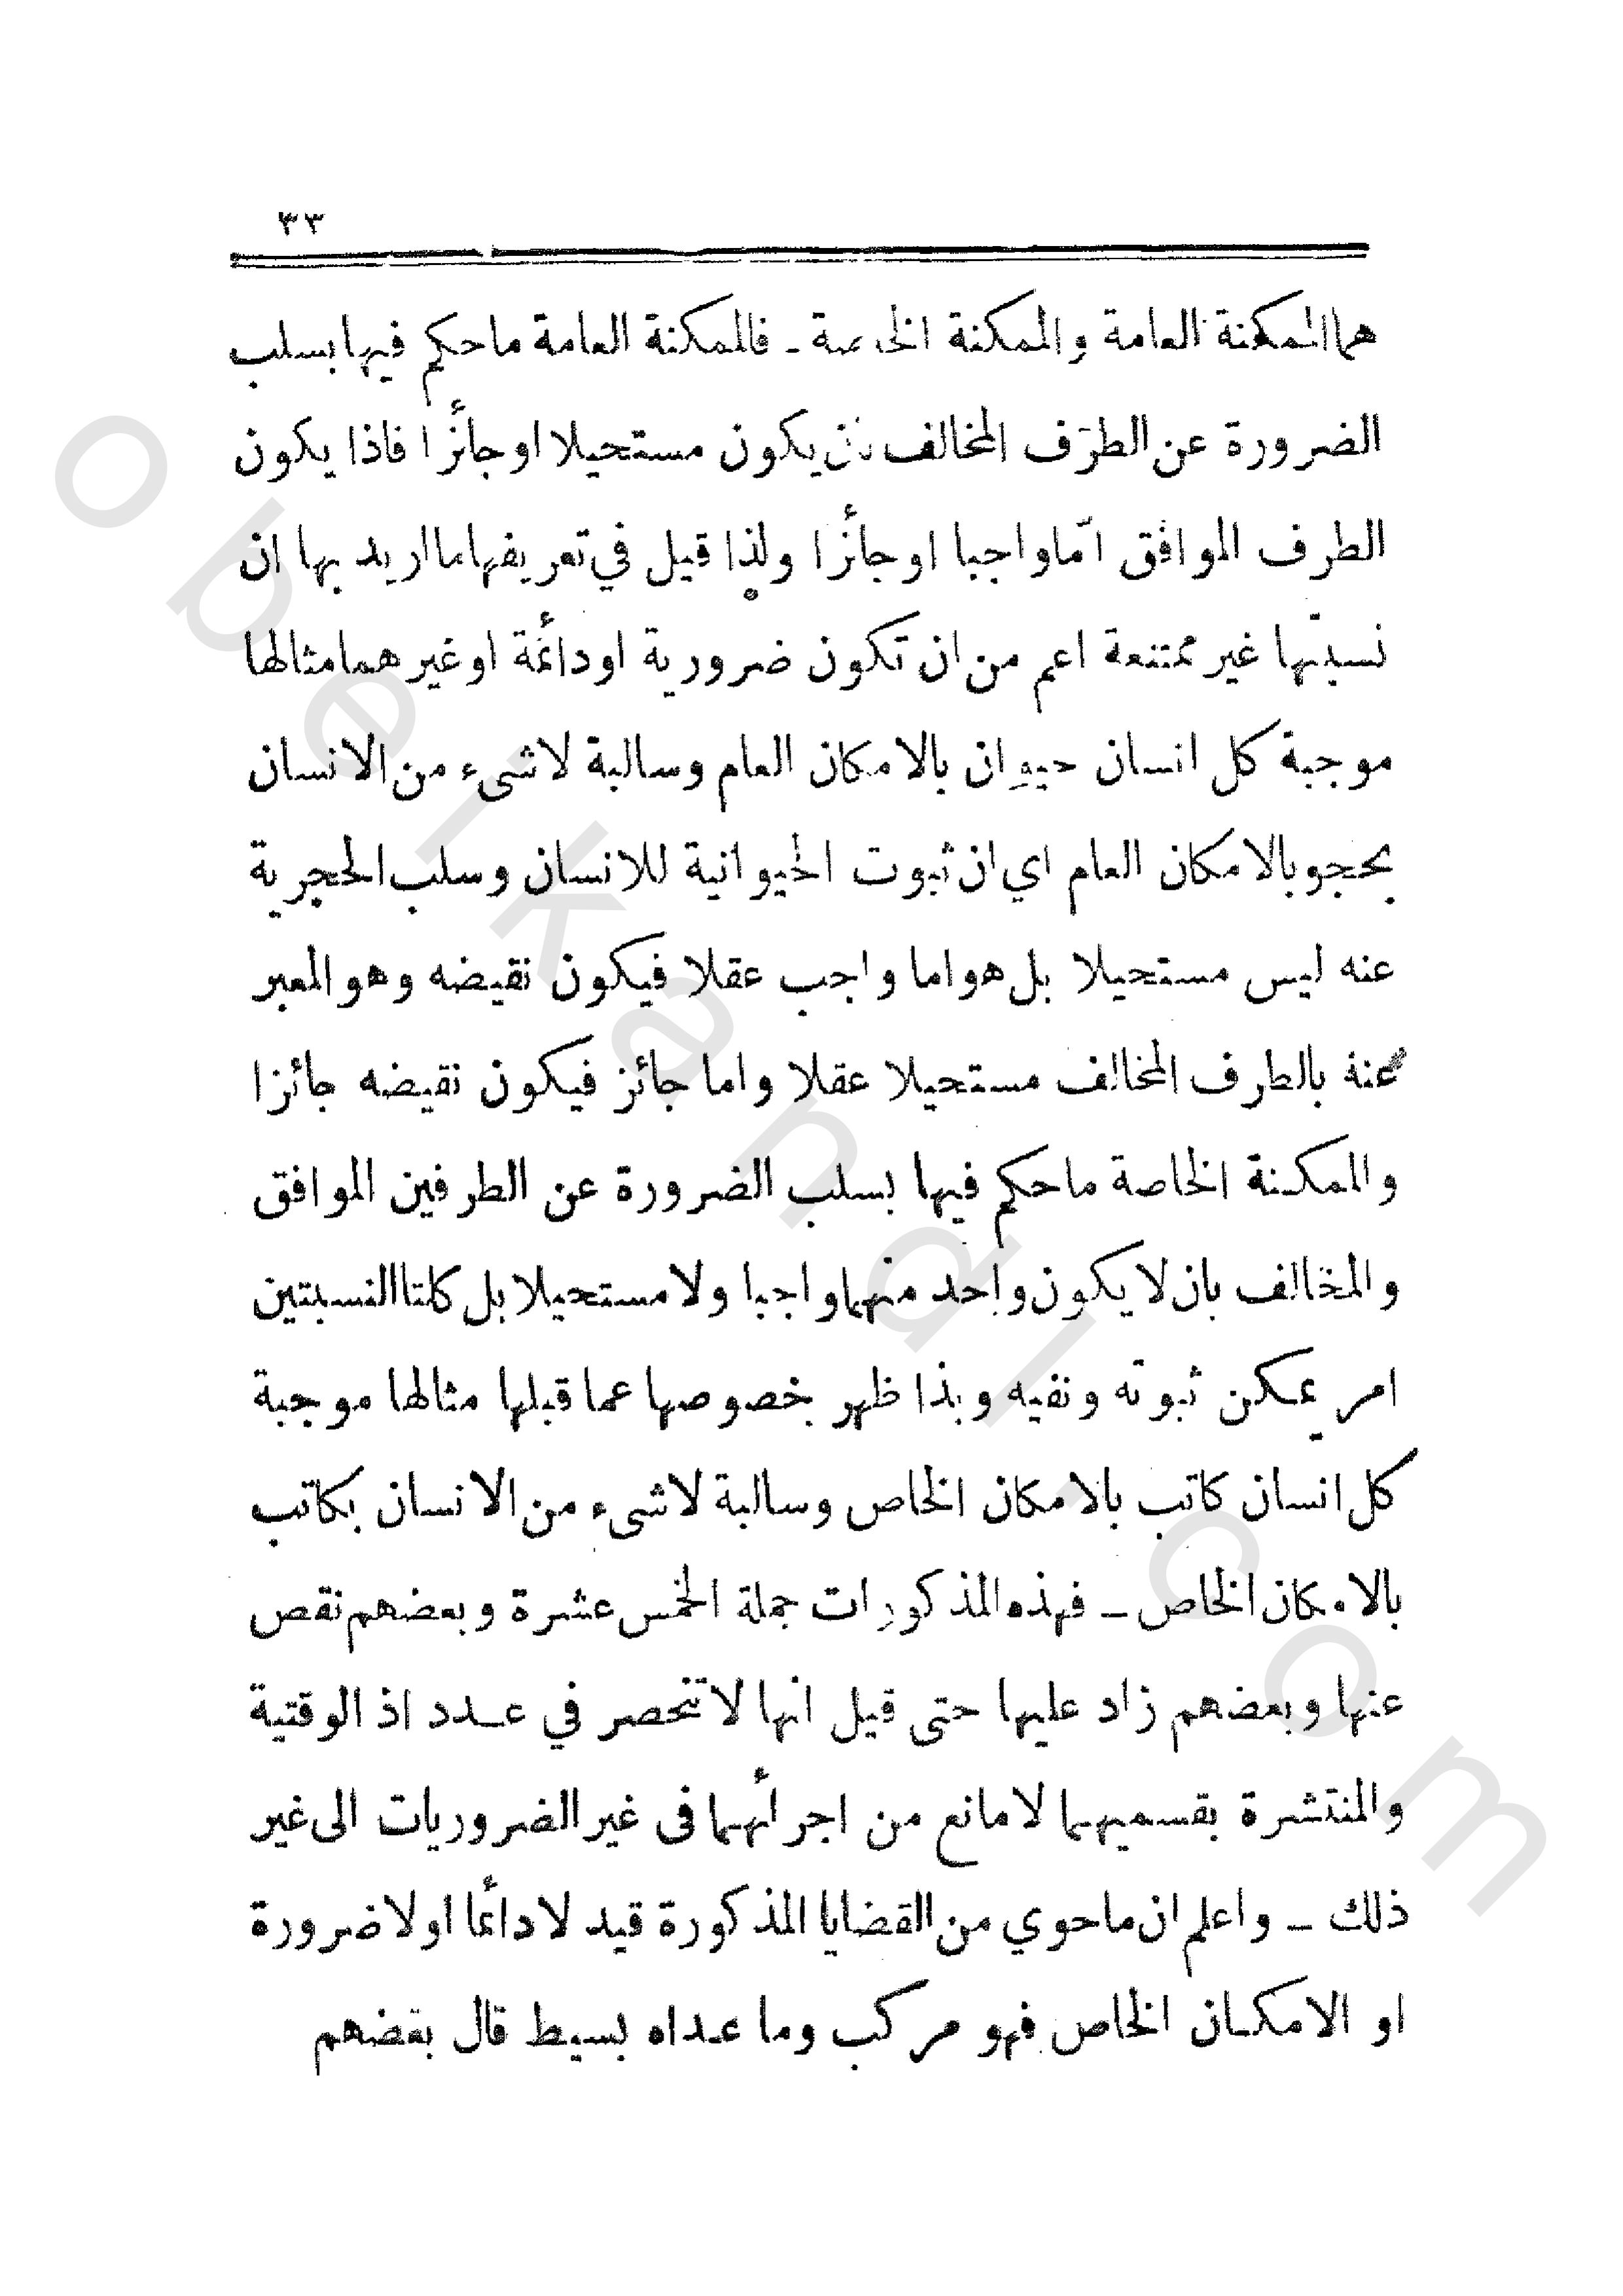 ٣٣
هما الممكنة العامة والممكنة الخاصة ـ فالممكنة العامة ما حكم فيها بسلب
الضرورة عن الطرف المخالف بان يكون مستحيلا او جائزا فاذا يكون
الطرف الموافق امّا واجبا او جائزا ولذا قيل في تعريفها ما اريد بها ان
نسبتها غير ممتنعة اعم من ان تكون ضرورية او دائمة او غير هما مثالها
موجبة كل انسان حيوان بالامكان العام وسالبة لاشىء من الانسان
بحجر بالامكان العام اي ان ثبوت الحيوانية للانسان وسلب الحجرية
عنه ليس مستحيلا بل هو اما واجب عقلا فيكون نقيضه وهو المعبر
عنه بالطرف المخالف مستحيلا عقلا واما جائز فيكون نقيضه جائزا
والممكنة الخاصة ما حكم فيها بسلب الضرورة عن الطرفين الموافق
والمخالف بان لا يكون واحد منهما واجبا ولا مستحيلا بل كلتا النسبتين
امر يمكن ثبوته ونفيه وبذا ظهر خصوصها عما قبلها مثالها موجبة
كل انسان كاتب بالامكان الخاص وسالبة لاشىء من الانسان بكاتب
بالامكان الخاص ـ فهذه المذكورات جملة الخمس عشرة وبعضهم نقص
عنها وبعضهم زاد عليها حتى قيل انها لا تنحصر في عدد اذ الوقتية
والمنتشرة بقسميهما لا مانع من اجرائهما فى غير الضروريات الى غير
ذلك ـ واعلم ان ما حوي من القضايا المذكورة قيد لا دائما او لا ضرورة
او الامكان الخاص فهو مركب وما عداه بسيط قال بعضهم
obeikandl.com